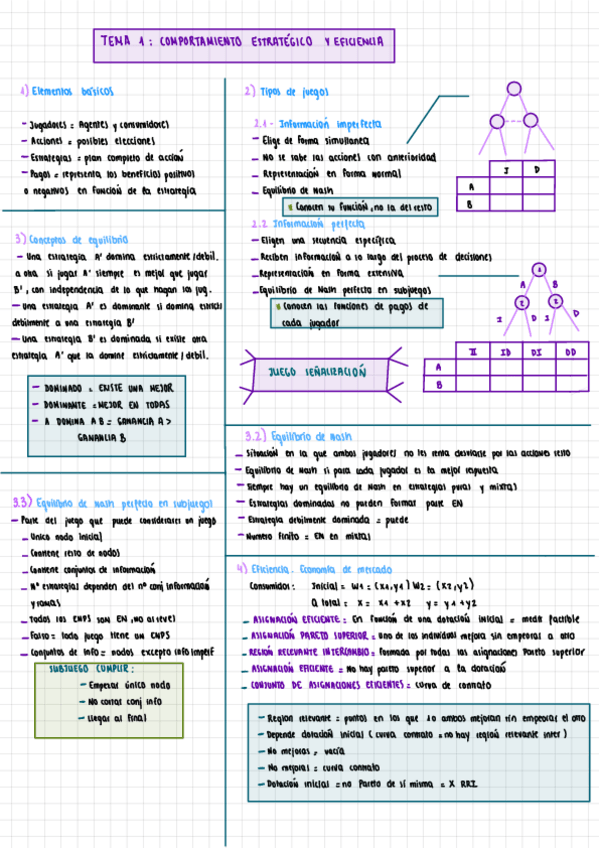 TEMA 1: COMPORTAMIENTO ESTRATÉGICO Y EFICIENCIA
1) Elementos básicos
- Jugadores = Agentes y consumidores
- Acciones = posibles elecciones
- Estrategias = plan completo de acción
- Pagos = representa los beneficios positivos
o negativos en función de la estrategia
2) Tipos de juegos
2.1- Información imperfecta
- Elige de forma simultanea
- No se sabe las acciones con anterioridad
- Representación en forma normal
- Equilibrio de Nash
* Conocen su función, no la del resto
I D
A
B
2.2 Información perfecta
- Eligen una secuencia específica
- Reciben información a lo largo del proceso de decisiones
- Representación en forma extensiva
- Equilibrio de Nash perfecto en subjuegos
* Conocen las funciones de pagos de
cada jugador
1
A B
2 2
I D I D
II ID DI DD
A
B
JUEGO SEÑALIZACIÓN
3) Conceptos de equilibrio
- Una estrategia A' domina estrictamente/debil.
a otra si jugar A' siempre es mejor que jugar
B', con independencia de lo que hagan los jug.
- Una estrategia A' es dominante si domina estricta
debilmente a una estrategia B'
- Una estrategia B' es dominada si existe otra
estrategia A' que la domine estrictamente/debil.
- DOMINADO = EXISTE UNA MEJOR
- DOMINANTE = MEJOR EN TODAS
- A DOMINA A B = GANANCIA A >
GANANCIA B
3.2) Equilibrio de Nash
- Situación en la que ambos jugadores no les renta desviarse por las acciones resto
- Equilibrio de Nash si para cada jugador es la mejor respuesta
- Siempre hay un equilibrio de Nash en estrategias puras y mixtas
- Estrategias dominadas no pueden formar parte EN
- Estrategia debilmente dominada = puede
- Numero finito = EN en mixtas
3.3) Equilibrio de Nash perfecto en subjuegos
- Parte del juego que puede considerarse un juego
- Unico nodo inicial
- Contiene resto de nodos
- Contiene conjuntos de información
- Nº estrategias dependen del nº conj información
y ramas
- Todos los ENPS son EN, no al revel
- Falso = todo juego tiene un ENPS
- Conjuntos de info = nodos excepto info imperf
SUBJUEGO CUMPLIR:
- Empezar único nodo
- No cortar conj info
- Llegar al final
4) Eficiencia. Economía de mercado
Consumidor: Inicial = W1 = (x1, y1) W2 = (x2, y2)
Q total = x = x1 + x2 y = y1 + y2
- ASIGNACIÓN EFICIENTE: En función de una dotación inicial = medir factible
- ASIGNACIÓN PARETO SUPERIOR = Uno de los individual mejora sin empeorar a otro
- REGIÓN RELEVANTE INTERCAMBIO = formada por todas las asignaciones Pareto superior
- ASIGNACIÓN EFICIENTE = No hay pareto superior a la dotación
- CONJUNTO DE ASIGNACIONES EFICIENTES = curva de contrato
- Region relevante = puntos en los que 1 o ambos mejoran sin empeorar el otro
- Depende dotacion inicial (curva contrato = no hay región relevante inter)
- No mejoras = vacía
- No mejoras = curva contrato
- Dotación inicial = no Pareto de sí misma = X RRI